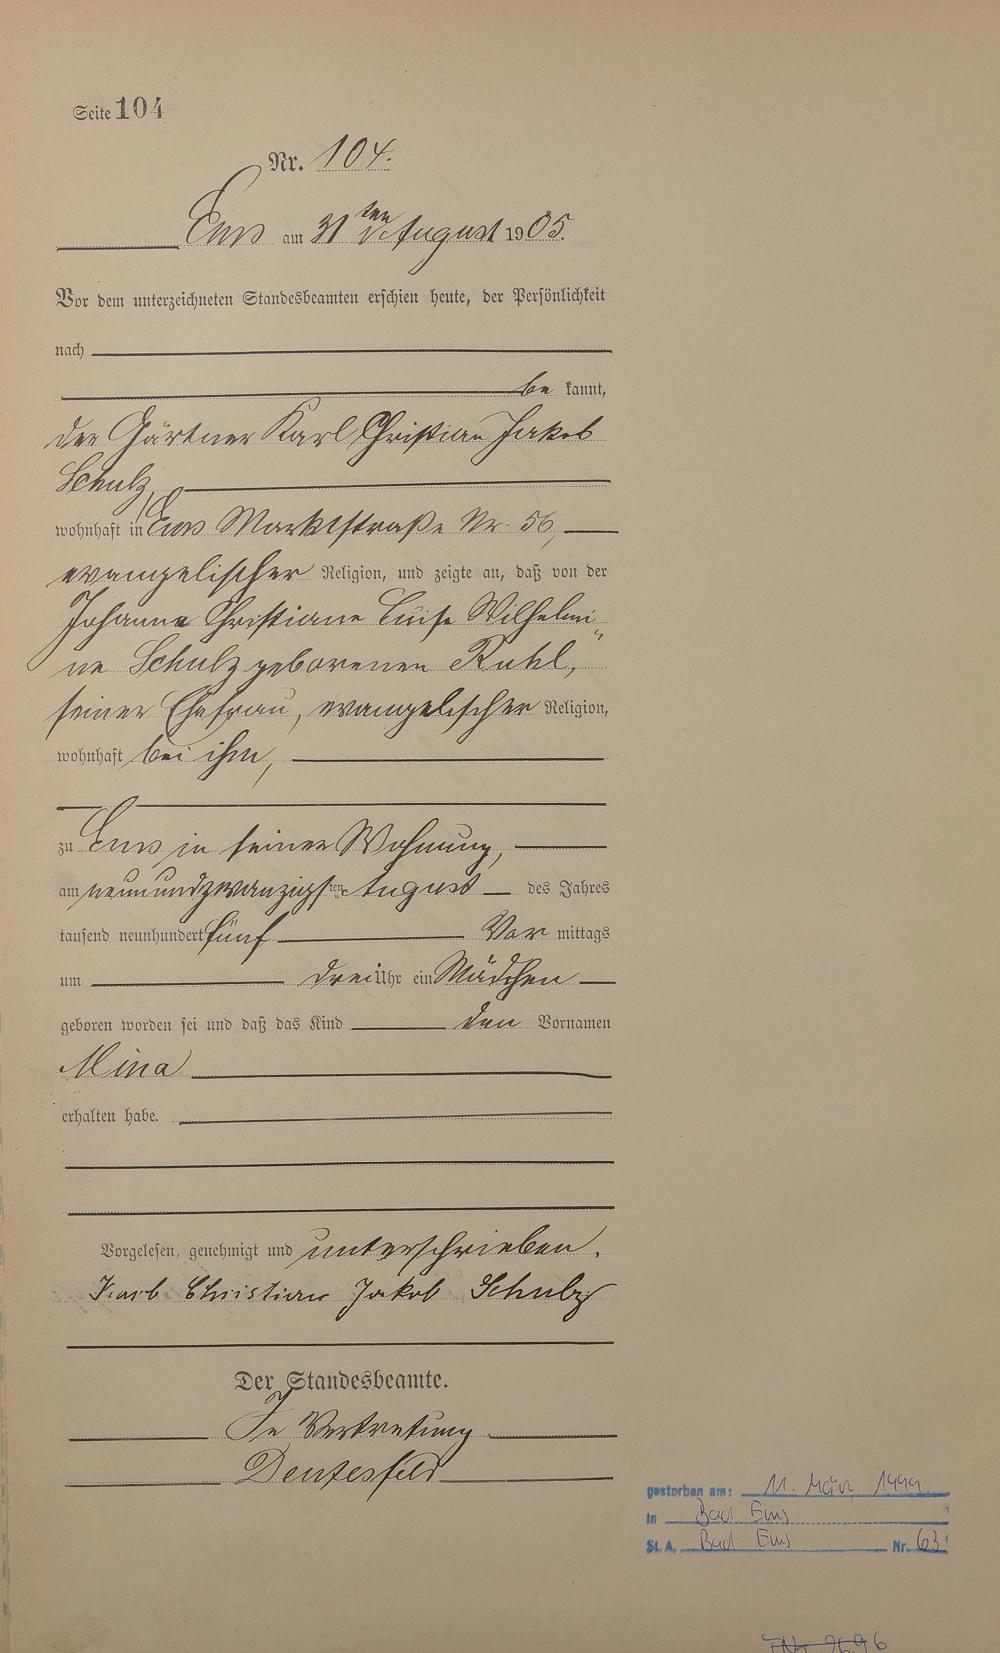 Seite 104
Nr. 104.
Ems am 31ten August 1905.
Vor dem unterzeichneten Standesbeamten erschien heute, der Persönlichkeit
nach
be kannt,
der Gärtner Karl Christian Jakob
Schulz,
wohnhaft in Ems Marktstraße Nr. 56,
evangelischer Religion, und zeigte an, daß von der
Johanna Christiane Luise Wilhelmi
ne Schulz geborenen Ruhl,
seiner Ehefrau, evangelischer Religion,
wohnhaft bei ihm,
zu Ems in seiner Wohnung,
am neunundzwanzigsten August des Jahres
tausend neunhundert fünf Vor mittags
um drei Uhr ein Mädchen
geboren worden sei und daß das Kind den Vornamen
Mina
erhalten habe.
Vorgelesen, genehmigt und unterschrieben.
Karl Christian Jakob Schulz
Der Standesbeamte.
In Vertretung
gestorben am: 11. März
in Bad Ems
St. A. Bad Ems Nr. 63